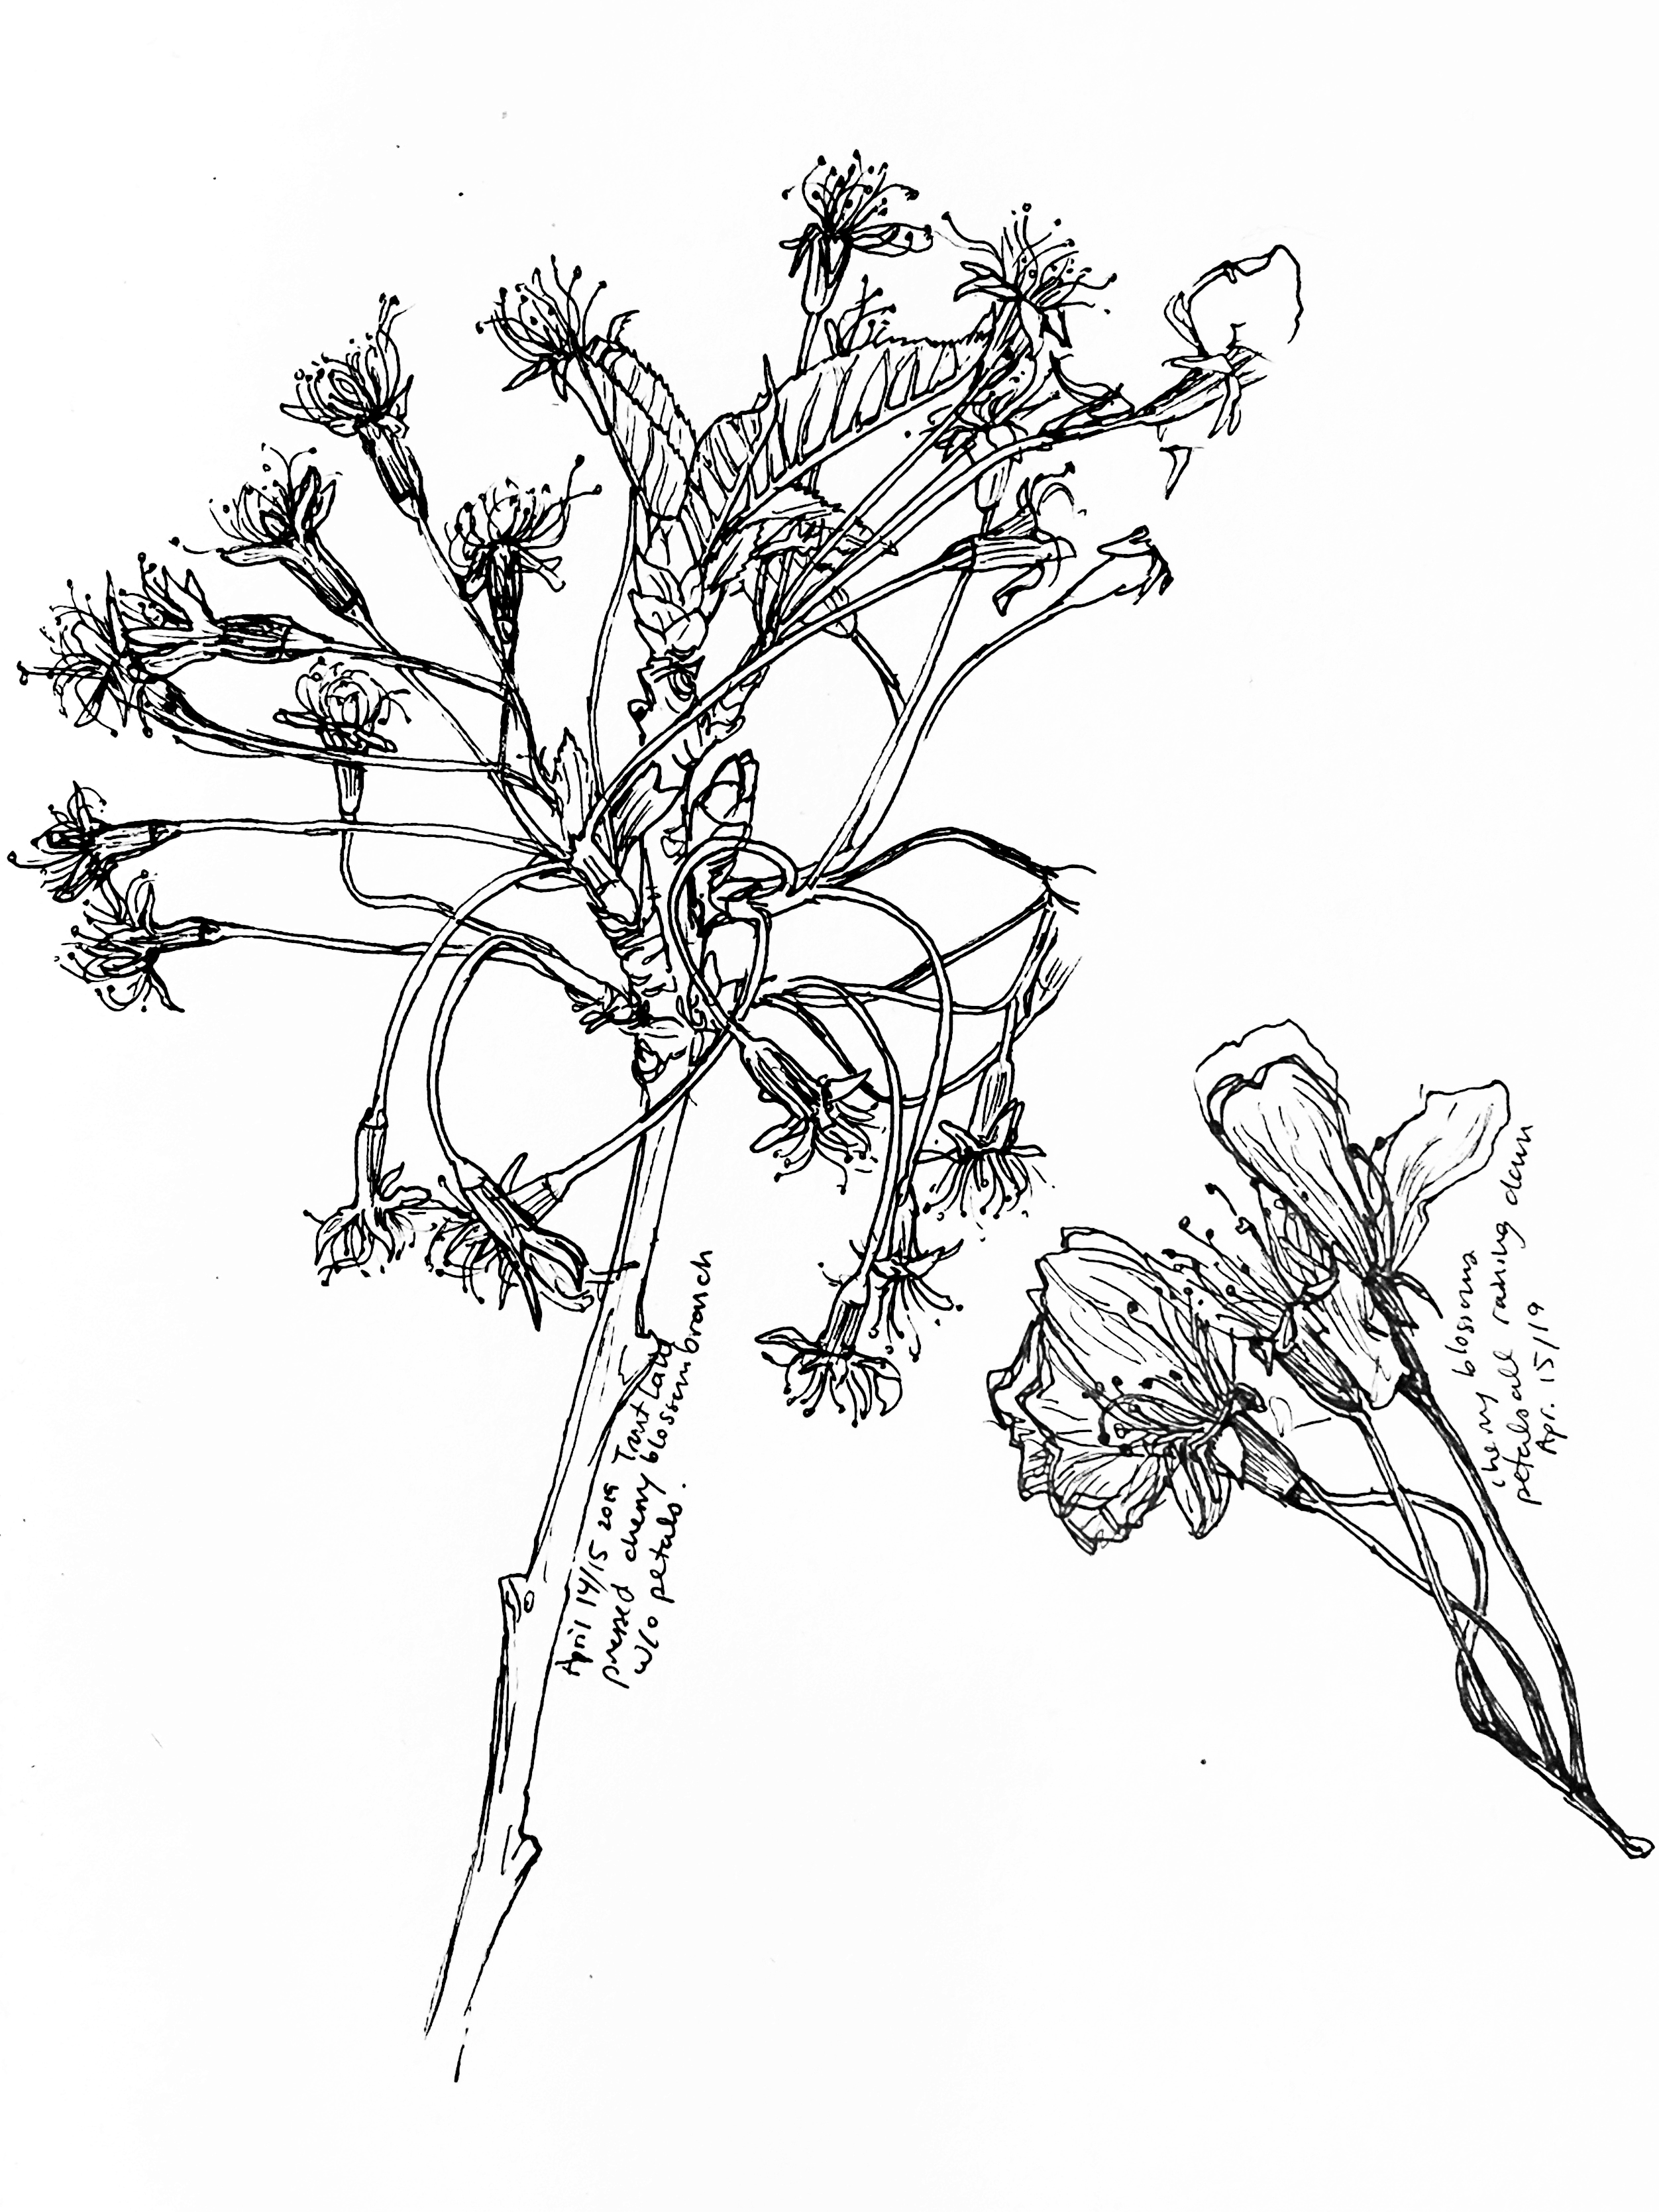 April 14/15 2019 Trent Land
pressed cherry blossom branch
w/o petals.
cherry blossoms
petals all raining down
Apr. 15/19